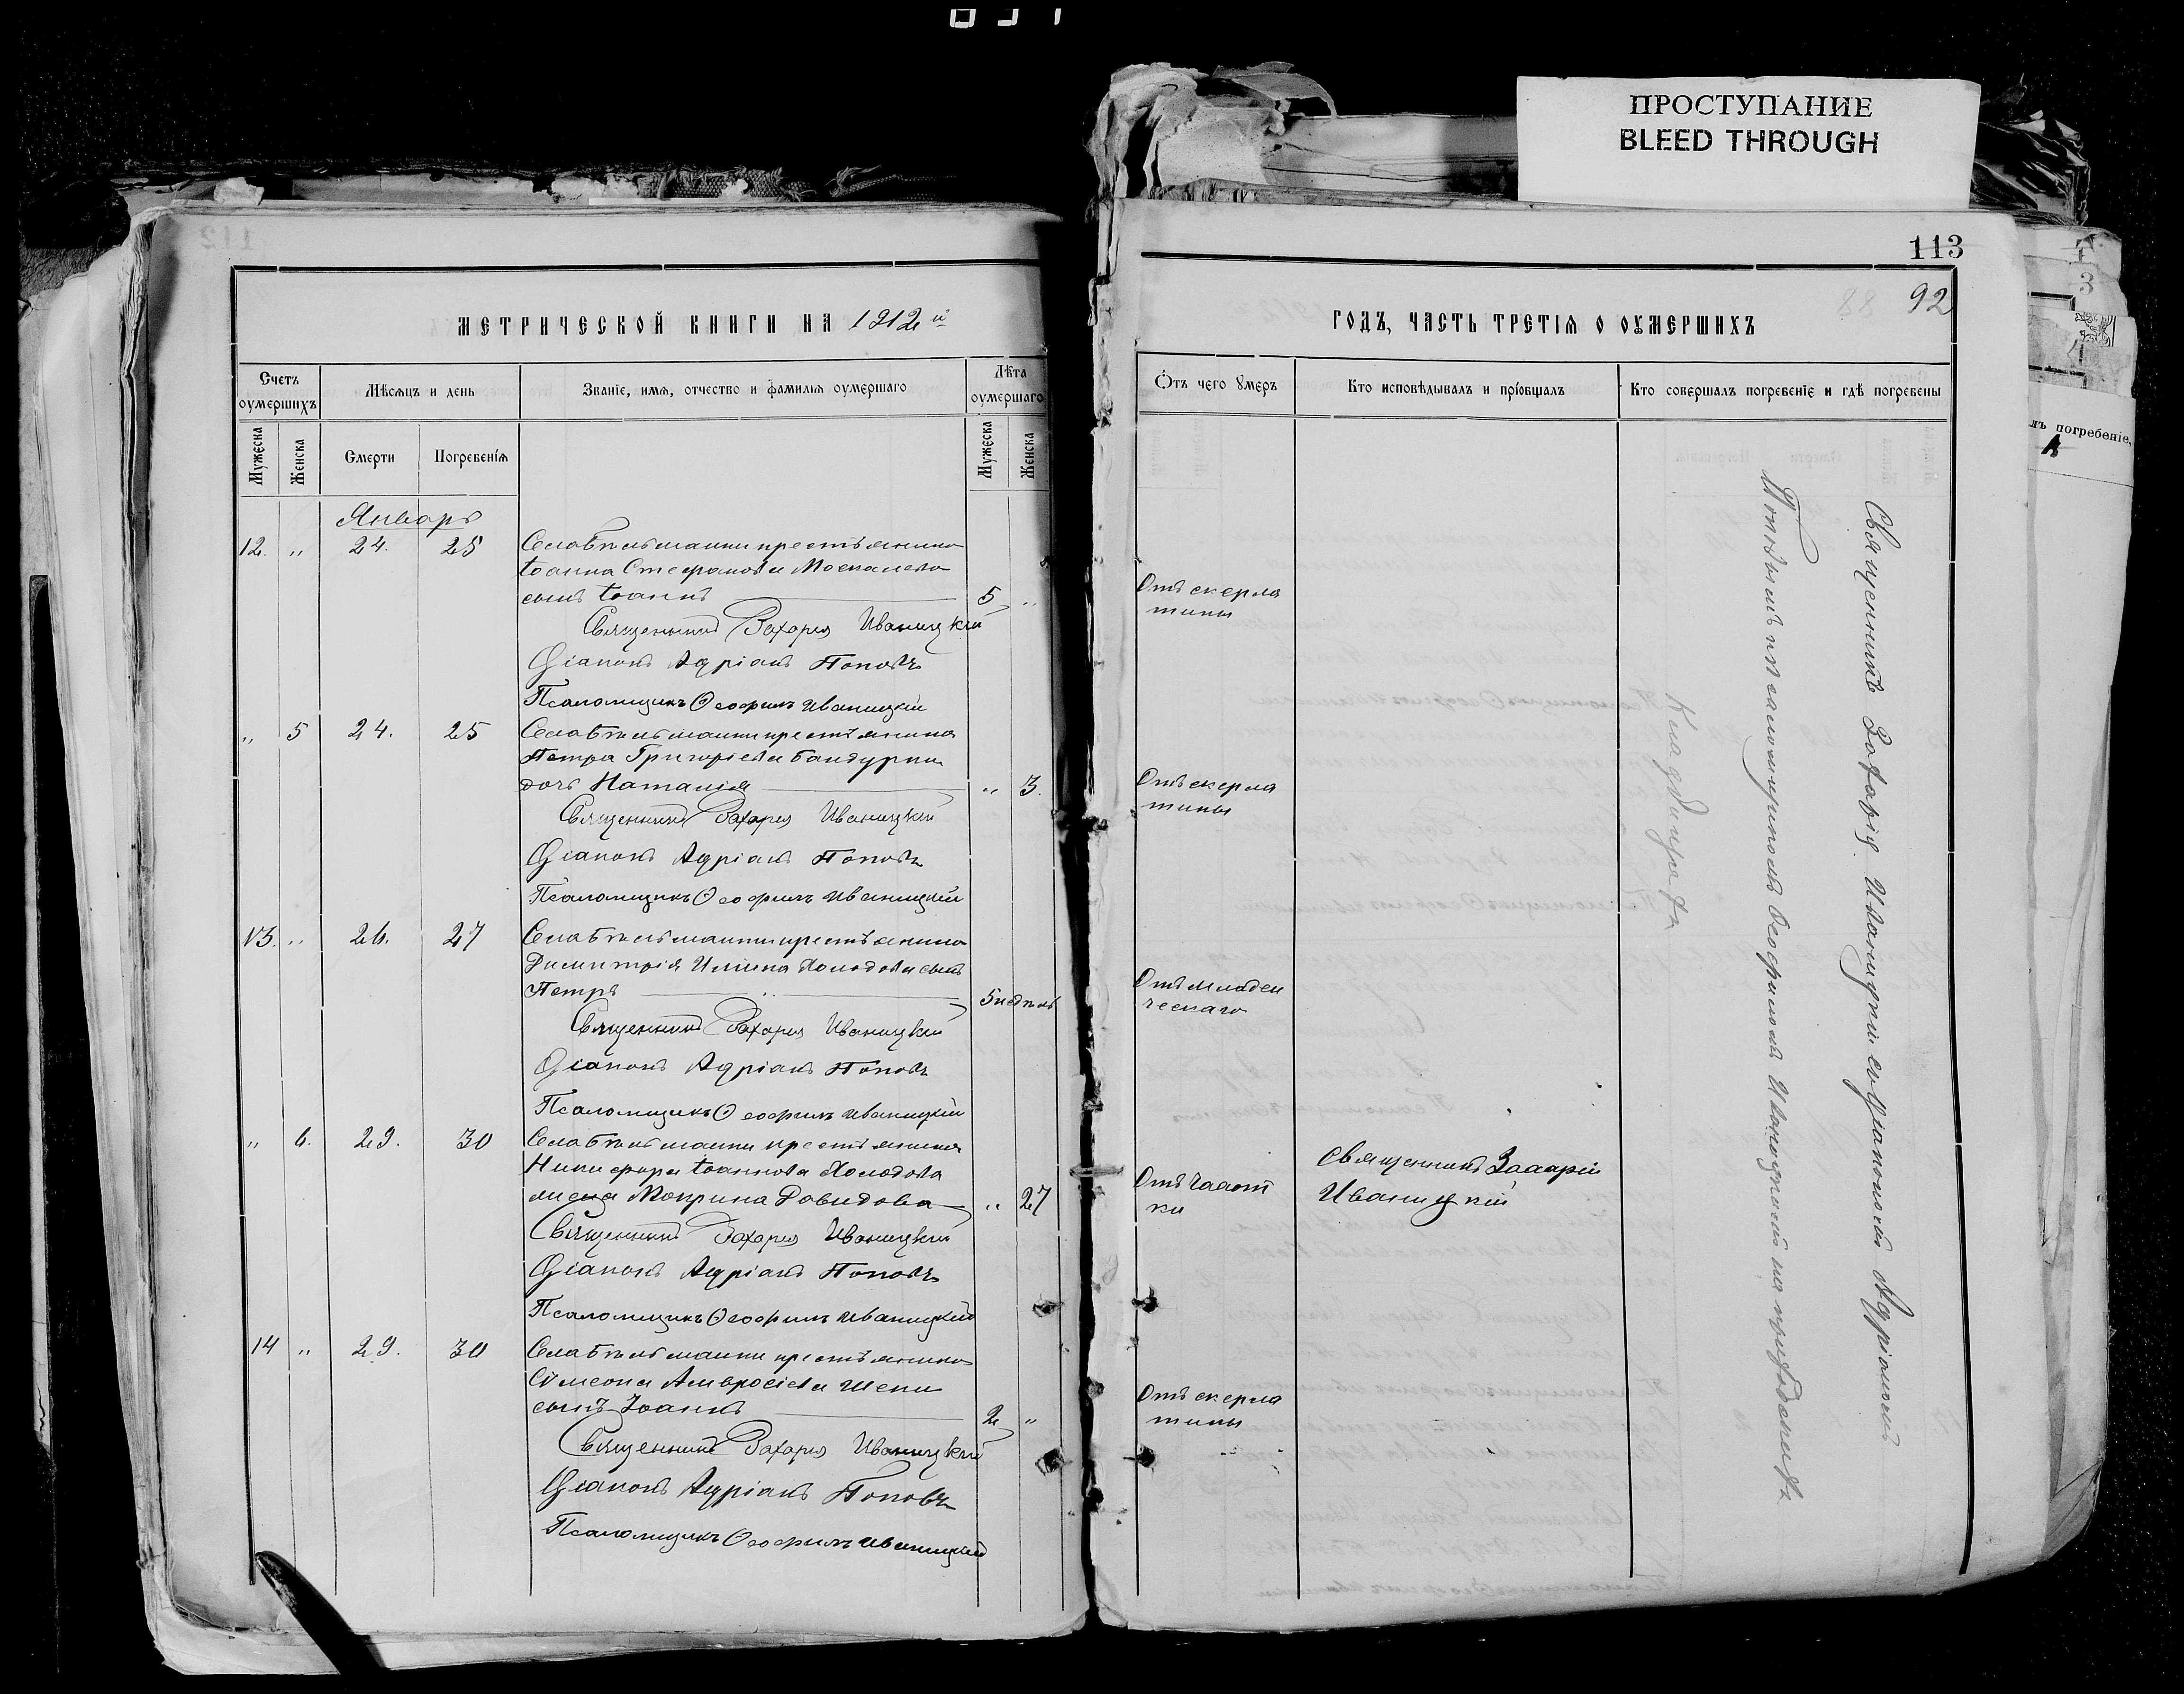 ПРОСТУПАНИЕ
BLEED THROUGH
МЕТРИЧЕСКОЙ КНИГИ НА 1912й
Счетъ оумершихъ
Мѣсяцъ и день
Званіе, имя, отчество и фамилія оумершаго
Лѣта оумершаго
Мужеска
Женска
Смерти
Погребенія
Мужеска
Женска
Январь
12. " 24. 25
крестьянина
Іоанна Стефанова Москалева
сынъ Іоаннъ 5 "
Священникъ Захарія Иваницкій
Діаконъ Адріанъ Поповъ
Псаломщикъ Ѳеофилъ Иваницкій
" 5 24. 25
крестьянина
Петра Григорьева Бандурки
дочь Наталія " 3.
Священникъ Захарія Иваницкій
Діаконъ Адріанъ Поповъ
Псаломщикъ Ѳеофилъ Иваницкій
13. " 26. 27
крестьянина
Димитрія Ильина Холодова сынъ
Петръ 5 недѣль
Священникъ Захарія Иваницкій
Діаконъ Адріанъ Поповъ
Псаломщикъ Ѳеофилъ Иваницкій
" 6. 29. 30
крестьянина
Никифора Іоаннова Холодова
жена Мокрина Давидова " 27
Священникъ Захарія Иваницкій
Діаконъ Адріанъ Поповъ
Псаломщикъ Ѳеофилъ Иваницкій
14 " 29. 30
крестьянина
Сѵмеона Амвросіева
сынъ Іоаннъ 2 "
Священникъ Захарія Иваницкій
Діаконъ Адріанъ Поповъ
Псаломщикъ Ѳеофилъ Иваницкій
113
92
ГОДЪ, ЧАСТЬ ТРЕТІЯ О ОУМЕРШИХЪ
Отъ чего умеръ
Кто исповѣдывалъ и пріобщалъ
Кто совершалъ погребеніе и гдѣ погребены
Отъ скерла
тины
Отъ скерла
тины
Отъ младен
ческаго
Отъ чахот
ки
Священникъ Захарій
Иваницкій
Отъ скерла
тины
Священникъ Захарія Иваницкій съ Діакономъ Адріаномъ
Поповымъ и псаломщикомъ Ѳеофиломъ Иваницкимъ на приходскомъ
кладбищѣ
лъ погребеніе,